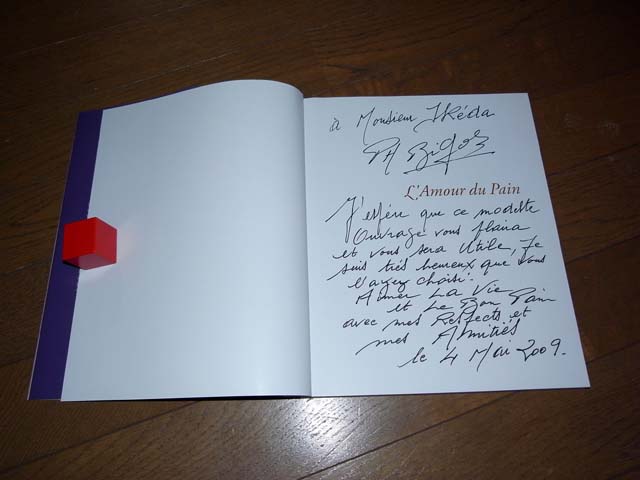 à Monsieur Ikéda
PH Bigot
L'Amour du Pain
J'espère que ce modeste
Ouvrage vous plaira
et vous sera utile, Je
suis très heureux que vous
l'ayez choisi.
Aimer La Vie
et Le Bon Pain
avec mes Respects et
mes Amitiés
le 4 Mai 2009.